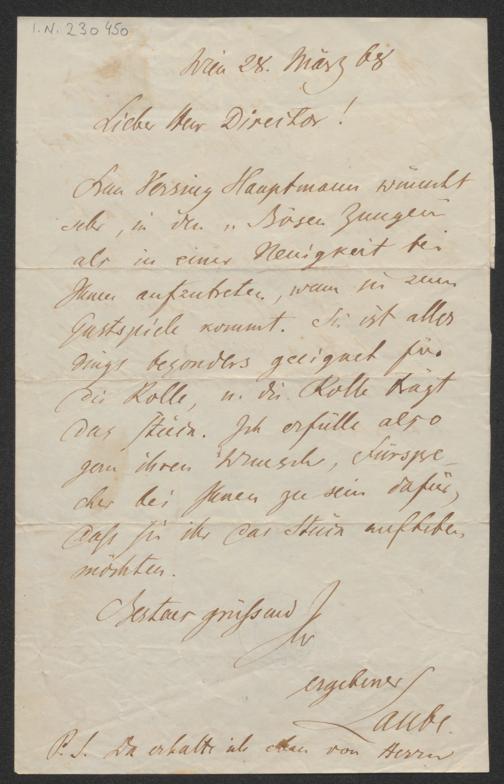 I.N. 230450
Wien 28. März 68
Lieber Herr Director!
Frau Hersing Hauptmann wünscht
sehr, in den „Bösen Zungen
als in einer Neuigkeit bei
Ihnen aufzutreten, wenn sie zum
Gastspiele kommt. Sie ist aller
dings besonders geeignet für
die Rolle, u. die Rolle trägt
das Stück. Ich erfülle also
gern ihren Wunsch, Fürspre-
cher bei Ihnen zu sein dafür,
daß Sie ihr das Stück aufheben
möchten.
Bestens grüßend
Ihr
ergebener
Laube.
P.S. Da erhalte ich eben von Herrn